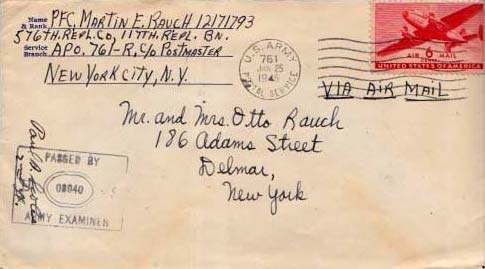 Name & Rank PFC, MARTIN E. RAUCH 12171793
576TH. REPL. CO, 117TH. REPL. BN.
Service Branch APO. 761-R, C/O POSTMASTER
NEW YORK CITY, N.Y.
U.S. ARMY
761
JAN 25
1945
POSTAL SERVICE
AIR 6 MAIL
UNITED STATES OF AMERICA
VIA AIR MAIL
Mr. and Mrs. Otto Rauch
186 Adams Street
Delmar,
New York
PASSED BY
ARMY EXAMINER